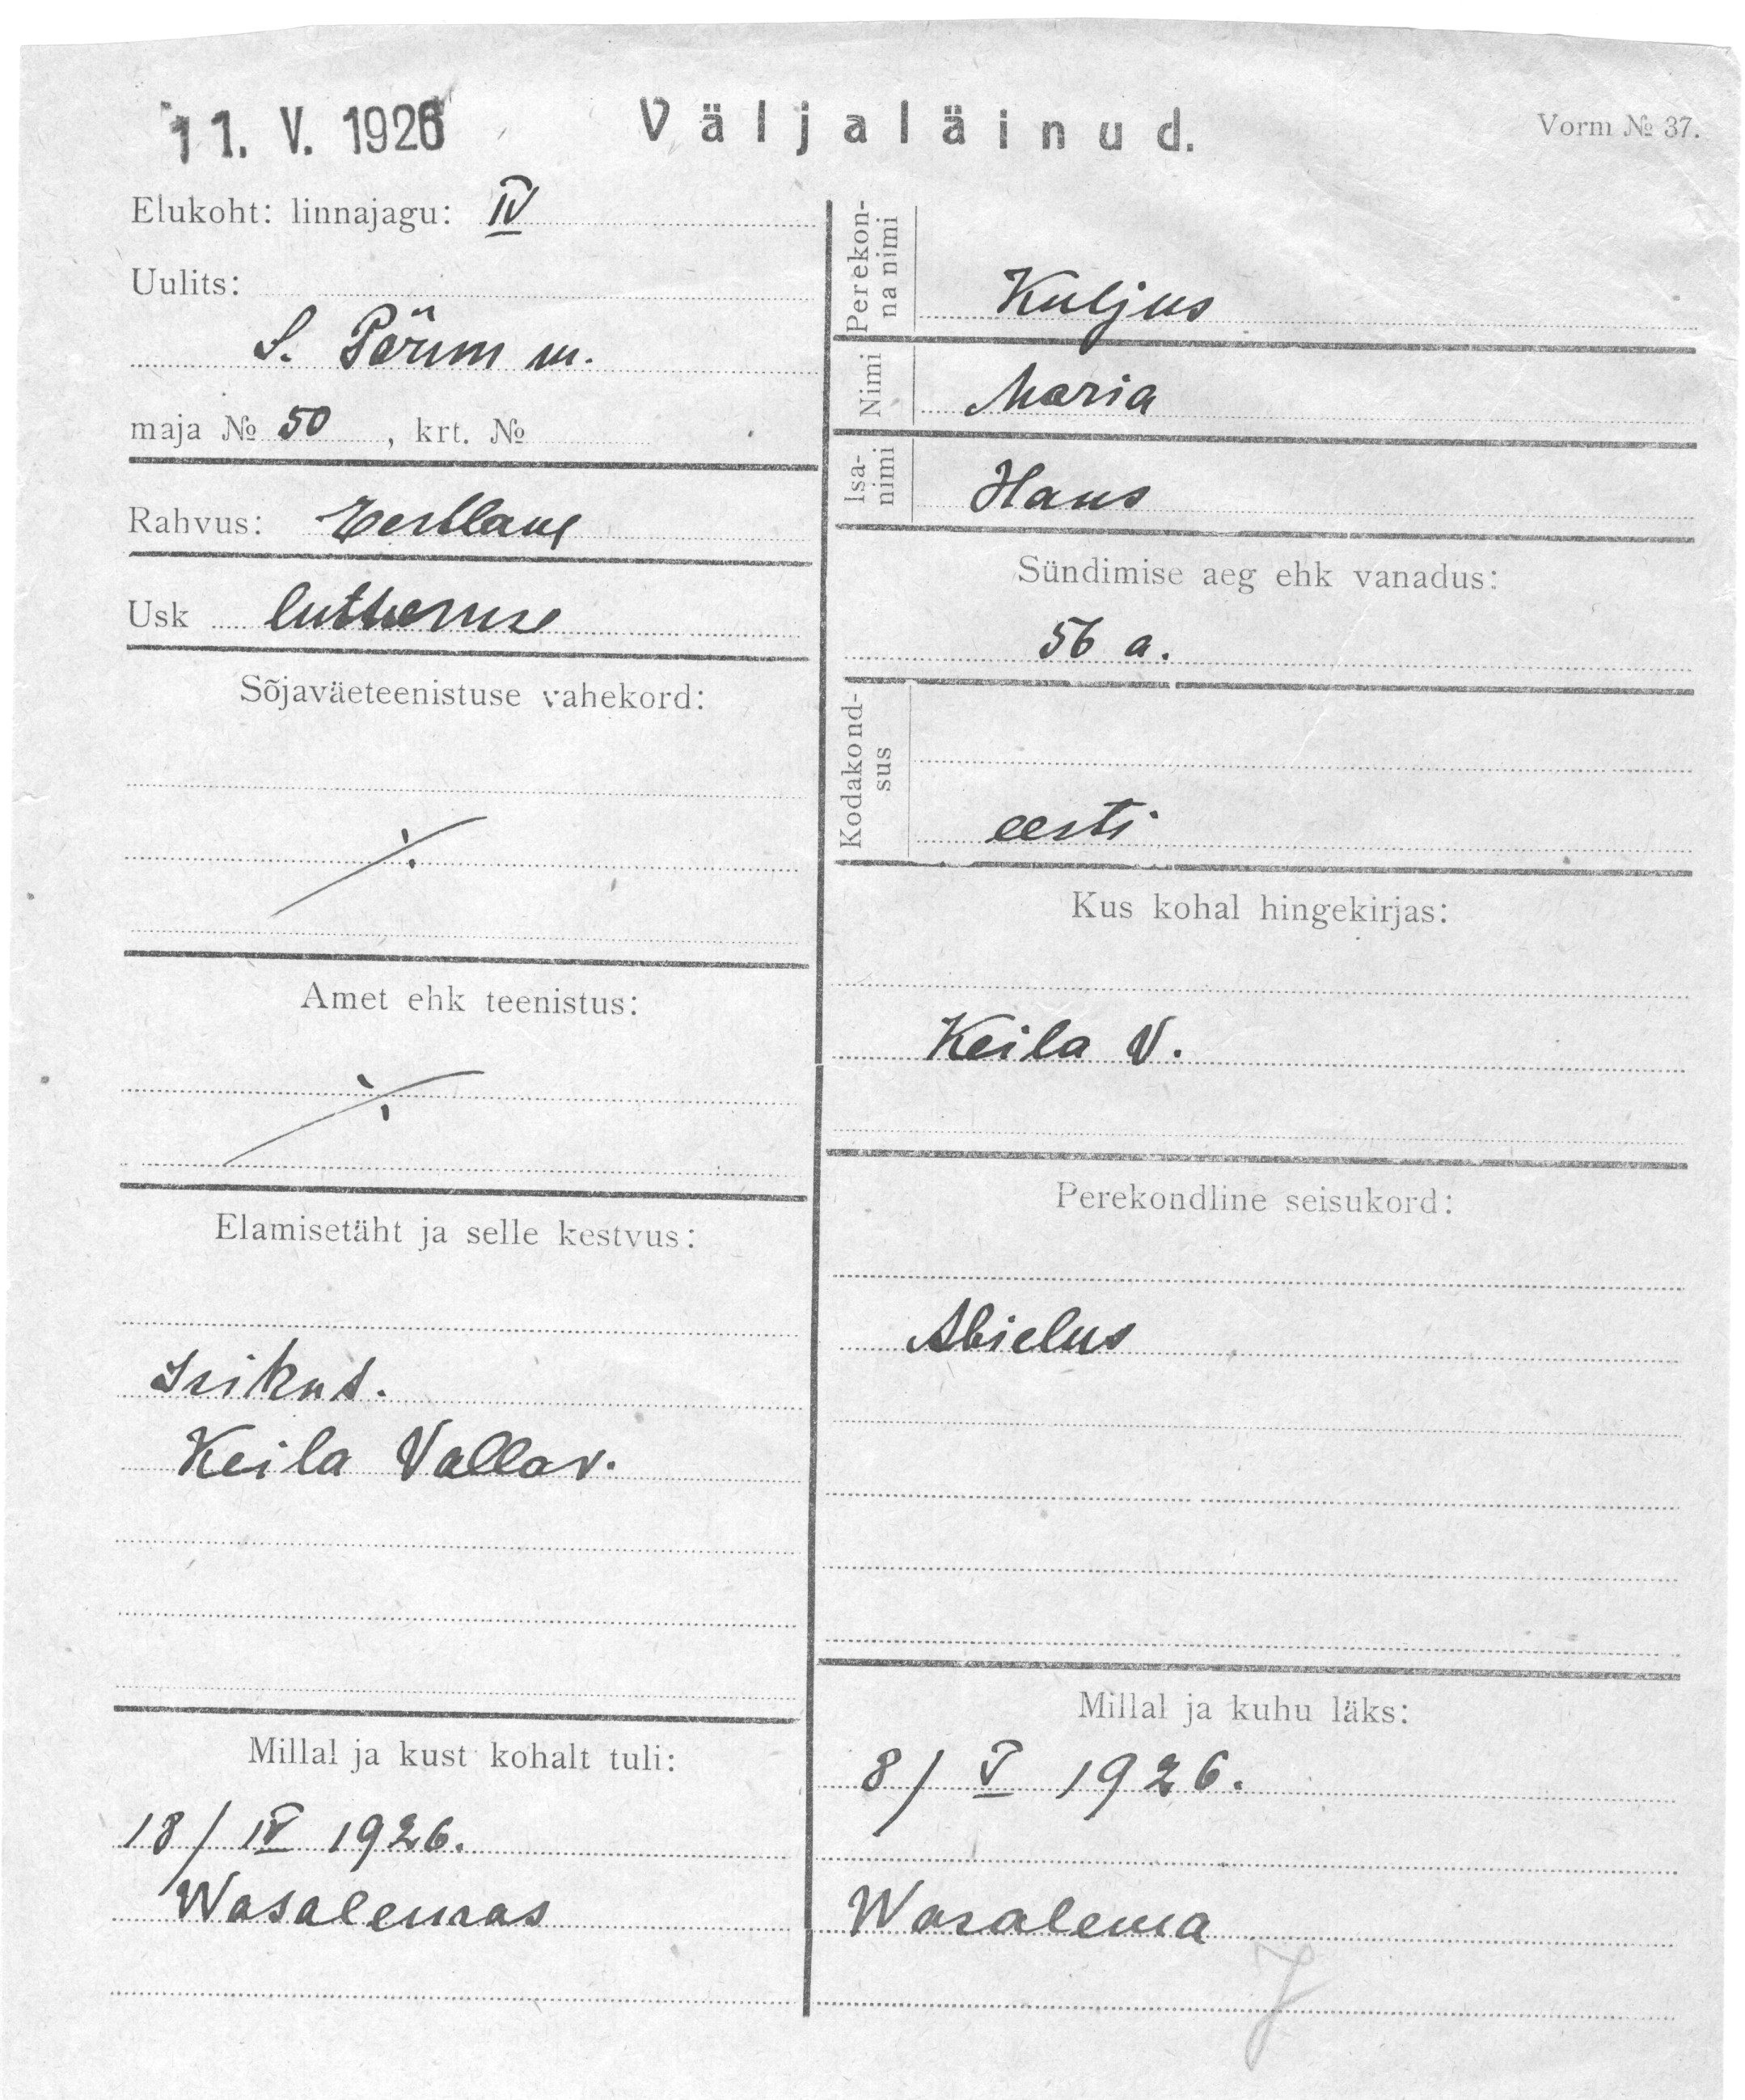 11. V. 1926
Väljaläinud.
Vorm № 37.
Elukoht: linnajagu: IV
Uulits:
S. Pärnu m.
maja № 50, krt. №
Rahvus: Eestlane
Usk lutheruse
Sõjaväeteenistuse vahekord:
⁒
Amet ehk teenistus:
⁒
Elamisetäht ja selle kestvus:
Isikut.
Keila Vallav.
Millal ja kust kohalt tuli:
18/IV 1926.
Wasalemas
Perekon-
na nimi
Kuljus
Nimi
Maria
Isa-
nimi
Hans
Sündimise aeg ehk vanadus:
56 a.
Kodakond-
sus
eesti
Kus kohal hingekirjas:
Keila V.
Perekondline seisukord:
Abielus
Millal ja kuhu läks:
8/V 1926.
Wasalema